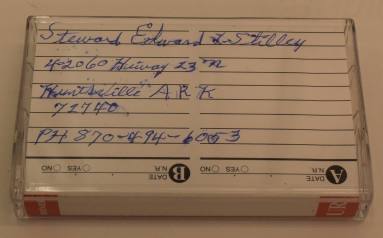 Steward Edward L Stilley
42060 Hiway 23 N
Huntsville ARK
72740
PH 870-494-6053
A DATE N.R. YES NO
B DATE N.R. YES NO